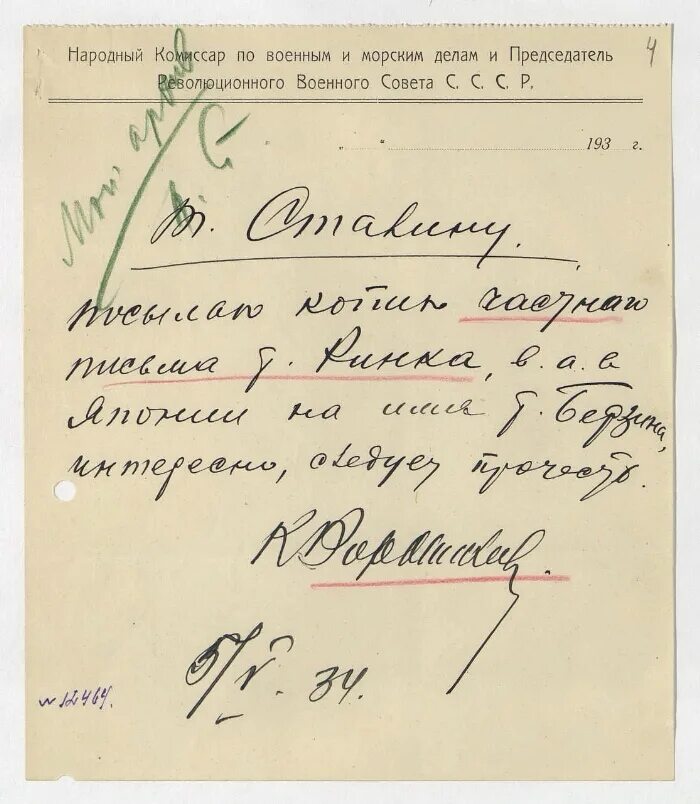 Народный Комиссар по военным и морским делам и Председатель
Революционного Военного Совета С. С. С. Р.
4
Мой архив
И. С.
„ “ 193 г.
т. Сталину.
посылаю копию частнаго
письма т. Ринка, в. а. в
Японии на имя т. Берзина,
интересно, следует прочесть.
К Ворошилов.
5/V. 34.
№ 12464.